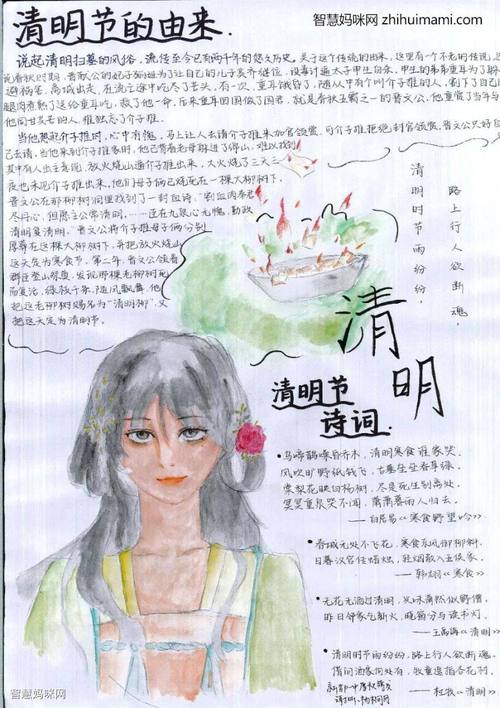 智慧妈咪网 zhihuimami.com
清明节的由来.
说起清明扫墓的风俗,流传至今已有两千年的悠久历史。关于这个传统的由来,这里有个不老的传说,
说春秋时期,晋献公的妃子骊姬为了让自己的儿子奚齐继位,设毒计谋太子申生自杀,申生的弟弟重耳为了躲
避祸害,离城出走,在流亡途中吃尽了苦头,有一次,重耳饿昏了,随人中有叫介子推的人,割下了自己
腿肉煮熟了送给重耳吃,救了他一命,后来重耳回国做了国君,就是春秋五霸之一的晋文公,他重赏了当年与
他同甘共苦的人,惟独忘了介子推。
当他想起介子推时,心中有愧,马上让人去请介子推来加官领赏,可介子推拒绝封官领赏,晋文公只好自
己去请,当他来到介子推家时,他已背着老母躲进了绵山,难以找到
其中有人出主意说,放火烧山逼介子推出来,大火烧了三天三
夜也未见介子推出来,他们母子俩已烧死在一棵大柳树下
晋文公在那柳树洞里找到了一封血诗,“割肉奉君
尽丹心,但愿主公常清明,……臣在九泉心无愧,勤政
清明复清明。”晋文公将介子推母子俩分别
厚葬在这棵大柳树下,并把放火烧山
这天定为寒食节。第二年,晋文公领着
群臣登山祭奠,发现那棵老柳树死
而复活,绿枝千条,随风飘舞,他
把这老柳树赐名为“清明柳”,又
把这天定为清明节。
清明时节雨纷纷,
路上行人欲断魂,
清明
清明节
诗词.
·乌啼鹊噪昏乔木,清明寒食谁家哭。
风吹旷野纸钱飞,古墓垒垒春草绿。
棠梨花映白杨树,尽是死生别离处。
冥冥重泉哭不闻,萧萧暮雨人归去。
——白居易《寒食野望吟》
·春城无处不飞花,寒食东风御柳斜。
日暮汉宫传蜡烛,轻烟散入五侯家。
——韩翃《寒食》
·无花无酒过清明,兴味萧然似野僧。
昨日邻家乞新火,晓窗分与读书灯。
——王禹偁《清明》
·清明时节雨纷纷,路上行人欲断魂。
借问酒家何处有,牧童遥指杏花村。
——杜牧《清明》
智慧妈咪网